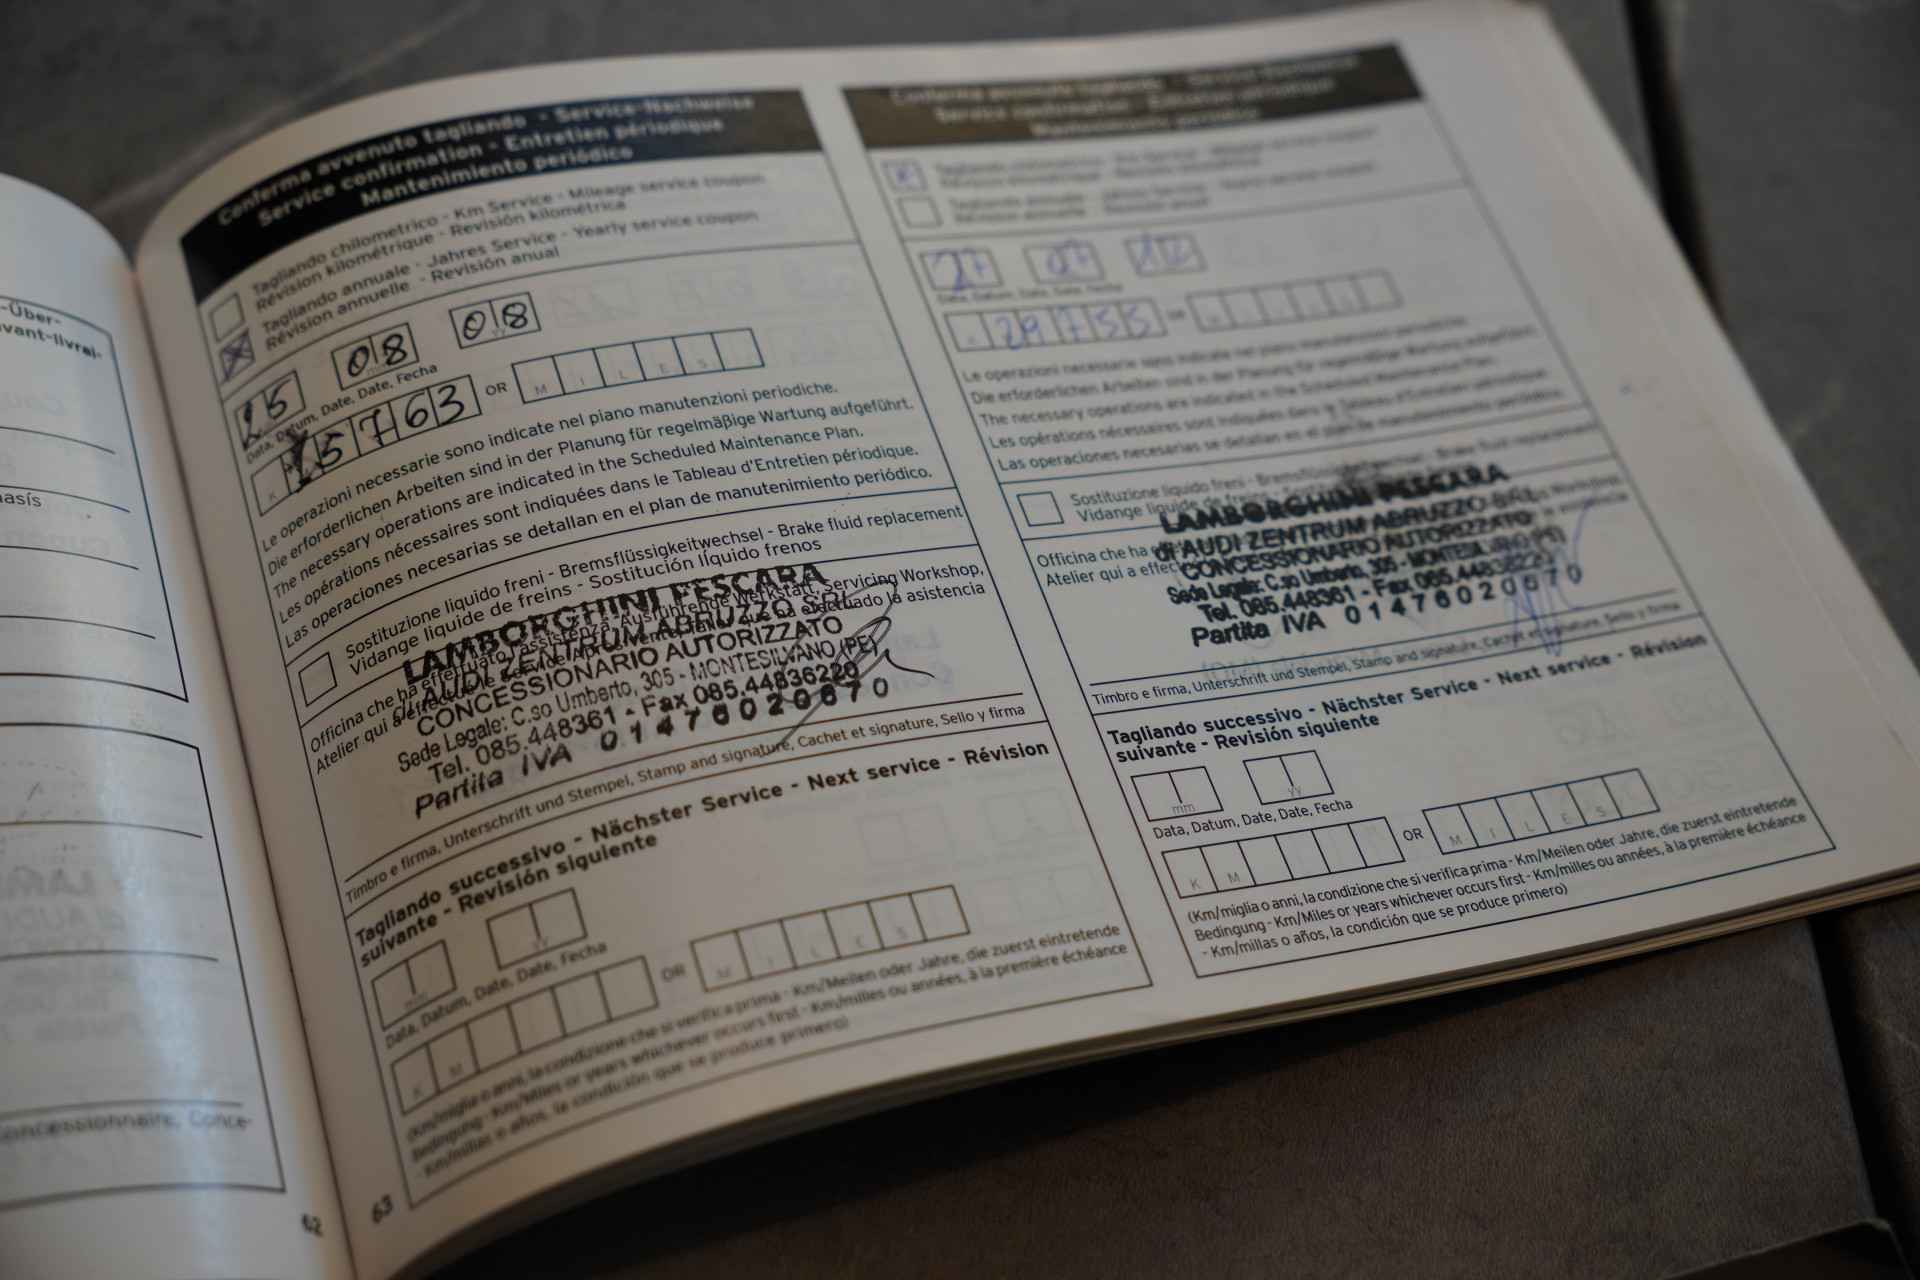 -Über-
vant-livrai-
asís
Concessionnaire, Conce-
62
Conferma avvenuto tagliando - Service-Nachweise
Service confirmation - Entretien périodique
Mantenimiento periódico
Tagliando chilometrico - Km Service - Mileage service coupon
Révision kilométrique - Revisión kilométrica
Tagliando annuale - Jahres Service - Yearly service coupon
Révision annuelle - Revisión anual
25 08 08
Data, Datum, Date, Date, Fecha
K 15763 OR MILES
Le operazioni necessarie sono indicate nel piano manutenzioni periodiche.
Die erforderlichen Arbeiten sind in der Planung für regelmäßige Wartung aufgeführt.
The necessary operations are indicated in the Scheduled Maintenance Plan.
Les opérations nécessaires sont indiquées dans le Tableau d'Entretien périodique.
Las operaciones necesarias se detallan en el plan de manutenimiento periódico.
Sostituzione liquido freni - Bremsflüssigkeitwechsel - Brake fluid replacement
Vidange liquide de freins - Sostitución líquido frenos
Officina che ha effettuato l'assistenza, Ausführende Werkstatt, Servicing Workshop,
Atelier qui a effectué le service Après vente, Taller que ha efectuado la asistencia
LAMBORGHINI PESCARA
di AUDI ZENTRUM ABRUZZO SRL
CONCESSIONARIO AUTORIZZATO
Sede Legale: C.so Umberto, 305 - MONTESILVANO (PE)
Tel. 085.448361 - Fax 085.44836220
Partita IVA 01476020670
Timbro e firma, Unterschrift und Stempel, Stamp and signature, Cachet et signature, Sello y firma
Tagliando successivo - Nächster Service - Next service - Révision
suivante - Revisión siguiente
mm yy
Data, Datum, Date, Date, Fecha
KM OR MILES
(Km/miglia o anni, la condizione che si verifica prima - Km/Meilen oder Jahre, die zuerst eintretende
Bedingung - Km/Miles or years whichever occurs first - Km/milles ou années, à la première échéance
- Km/millas o años, la condición que se produce primero)
63
Conferma avvenuto tagliando - Service-Nachweise
Service confirmation - Entretien périodique
Mantenimiento periódico
Tagliando chilometrico - Km Service - Mileage service coupon
Révision kilométrique - Revisión kilométrica
Tagliando annuale - Jahres Service - Yearly service coupon
Révision annuelle - Revisión anual
27 07
Data, Datum, Date, Date, Fecha
29733 OR
Le operazioni necessarie sono indicate nel piano manutenzioni periodiche.
Die erforderlichen Arbeiten sind in der Planung für regelmäßige Wartung aufgeführt.
The necessary operations are indicated in the Scheduled Maintenance Plan.
Les opérations nécessaires sont indiquées dans le Tableau d'Entretien périodique.
Las operaciones necesarias se detallan en el plan de manutenimiento periódico.
Sostituzione liquido freni - Bremsflüssigkeitwechsel - Brake fluid replacement
Vidange liquide de freins
Officina che ha
Atelier qui a effectué
LAMBORGHINI PESCARA
di AUDI ZENTRUM ABRUZZO SRL
CONCESSIONARIO AUTORIZZATO
Sede Legale: C.so Umberto, 305 - MONTESILVANO (PE)
Tel. 085.448361 - Fax 085.44836220
Partita IVA 01476020670
Timbro e firma, Unterschrift und Stempel, Stamp and signature, Cachet et signature, Sello y firma
Tagliando successivo - Nächster Service - Next service - Révision
suivante - Revisión siguiente
mm yy
Data, Datum, Date, Date, Fecha
KM OR MILES
(Km/miglia o anni, la condizione che si verifica prima - Km/Meilen oder Jahre, die zuerst eintretende
Bedingung - Km/Miles or years whichever occurs first - Km/milles ou années, à la première échéance
- Km/millas o años, la condición que se produce primero)